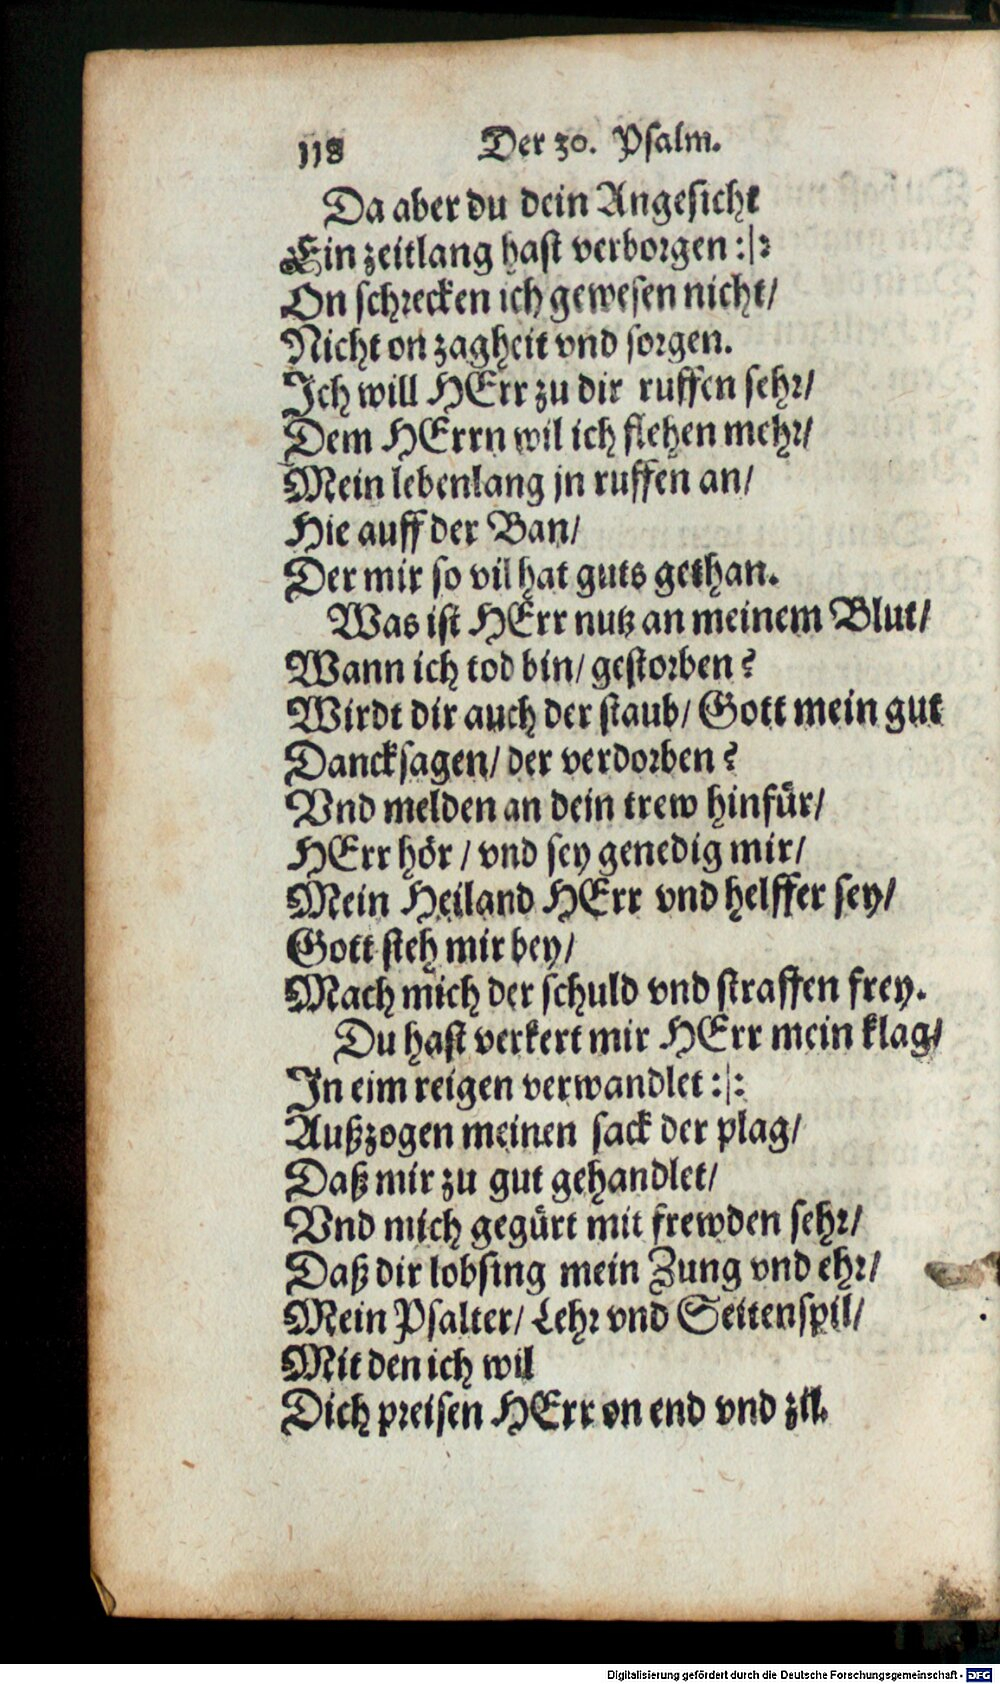 118 Der 30. Psalm.
Da aber du dein Angesicht
Ein zeitlang hast verborgen :|:
On schrecken ich gewesen nicht/
Nicht on zagheit vnd sorgen.
Ich will HErr zu dir ruffen sehr/
Dem HErrn wil ich flehen mehr/
Mein lebenlang jn ruffen an/
Hie auff der Ban/
Der mir so vil hat guts gethan.
Was ist HErr nutz an meinem Blut/
Wann ich tod bin/ gestorben?
Wirdt dir auch der staub/ Gott mein gut
Dancksagen/ der verdorben?
Vnd melden an dein trew hinfür/
HErr hör / vnd sey genedig mir/
Mein Heiland HErr vnd helffer sey/
Gott steh mir bey/
Mach mich der schuld vnd straffen frey.
Du hast verkert mir HErr mein klag/
In eim reigen verwandlet :|:
Außzogen meinen sack der plag/
Daß mir zu gut gehandlet/
Vnd mich gegürt mit frewden sehr/
Daß dir lobsing mein Zung vnd ehr/
Mein Psalter/ Lehr vnd Seitenspil/
Mit den ich wil
Dich preisen HErr on end vnd zil.
Digitalisierung gefördert durch die Deutsche Forschungsgemeinschaft - DFG